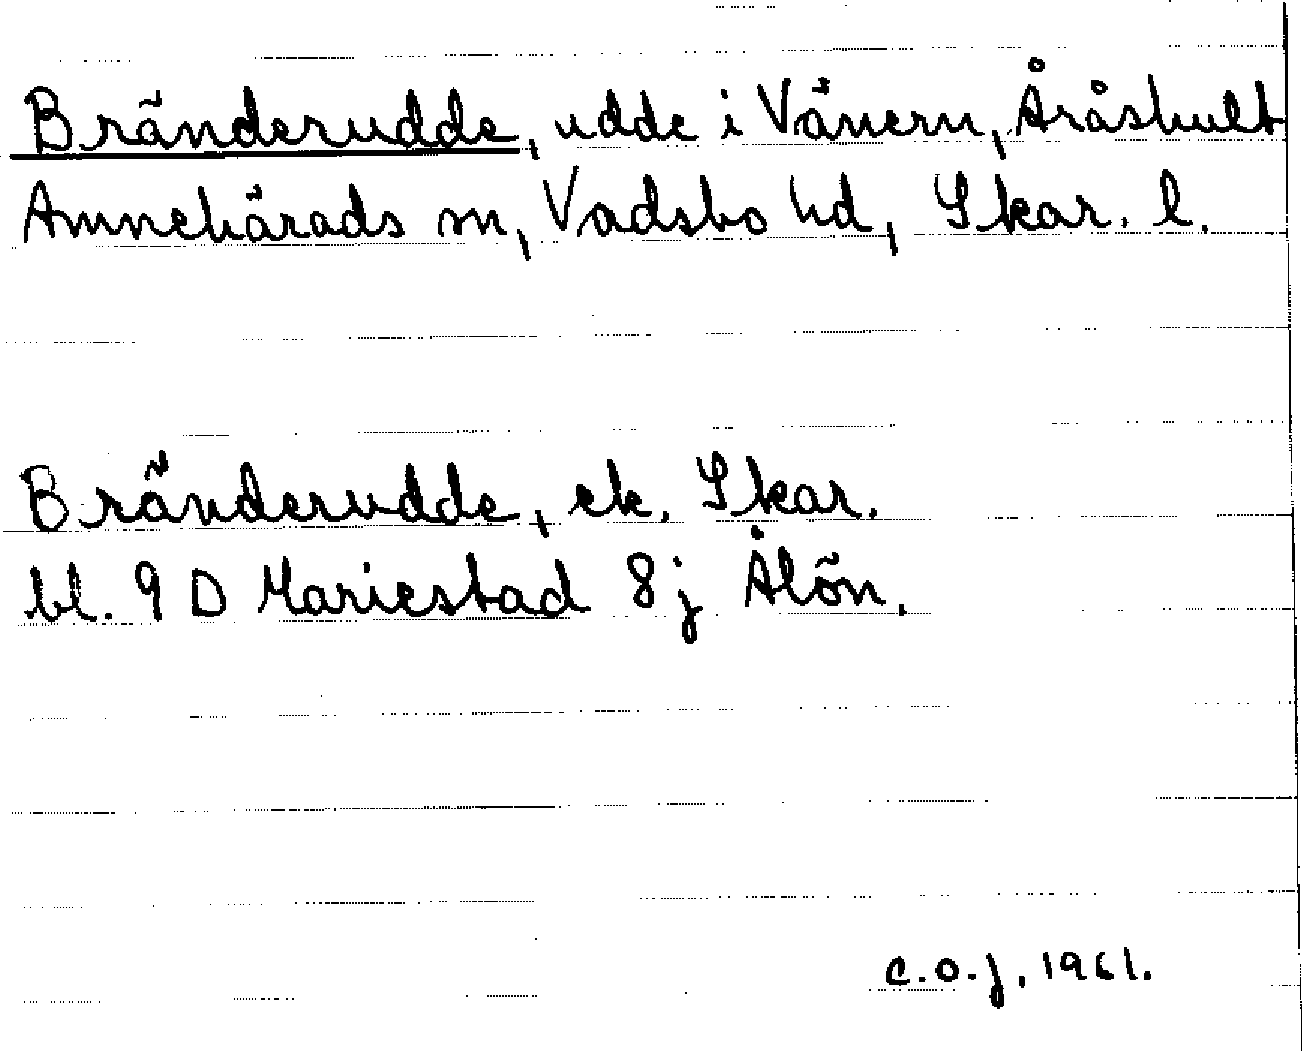 Bränderudde, udde i Vänern, Åråshult
Amnehärads sn, Vadsbo hd, Skar. l.
Bränderudde, ek. Skar.
bl. 9 D Mariestad 8j Ålön.
C.O.J. 1961.